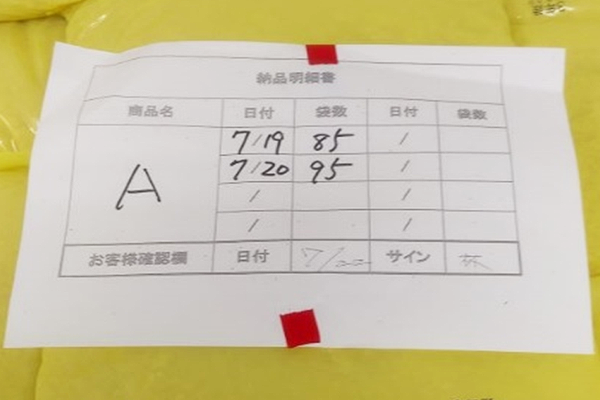 納品明細書
商品名 日付 袋数 日付 袋数
A 7/19 85 /
7/20 95 /
/ /
/ /
お客様確認欄 日付 7/22 サイン